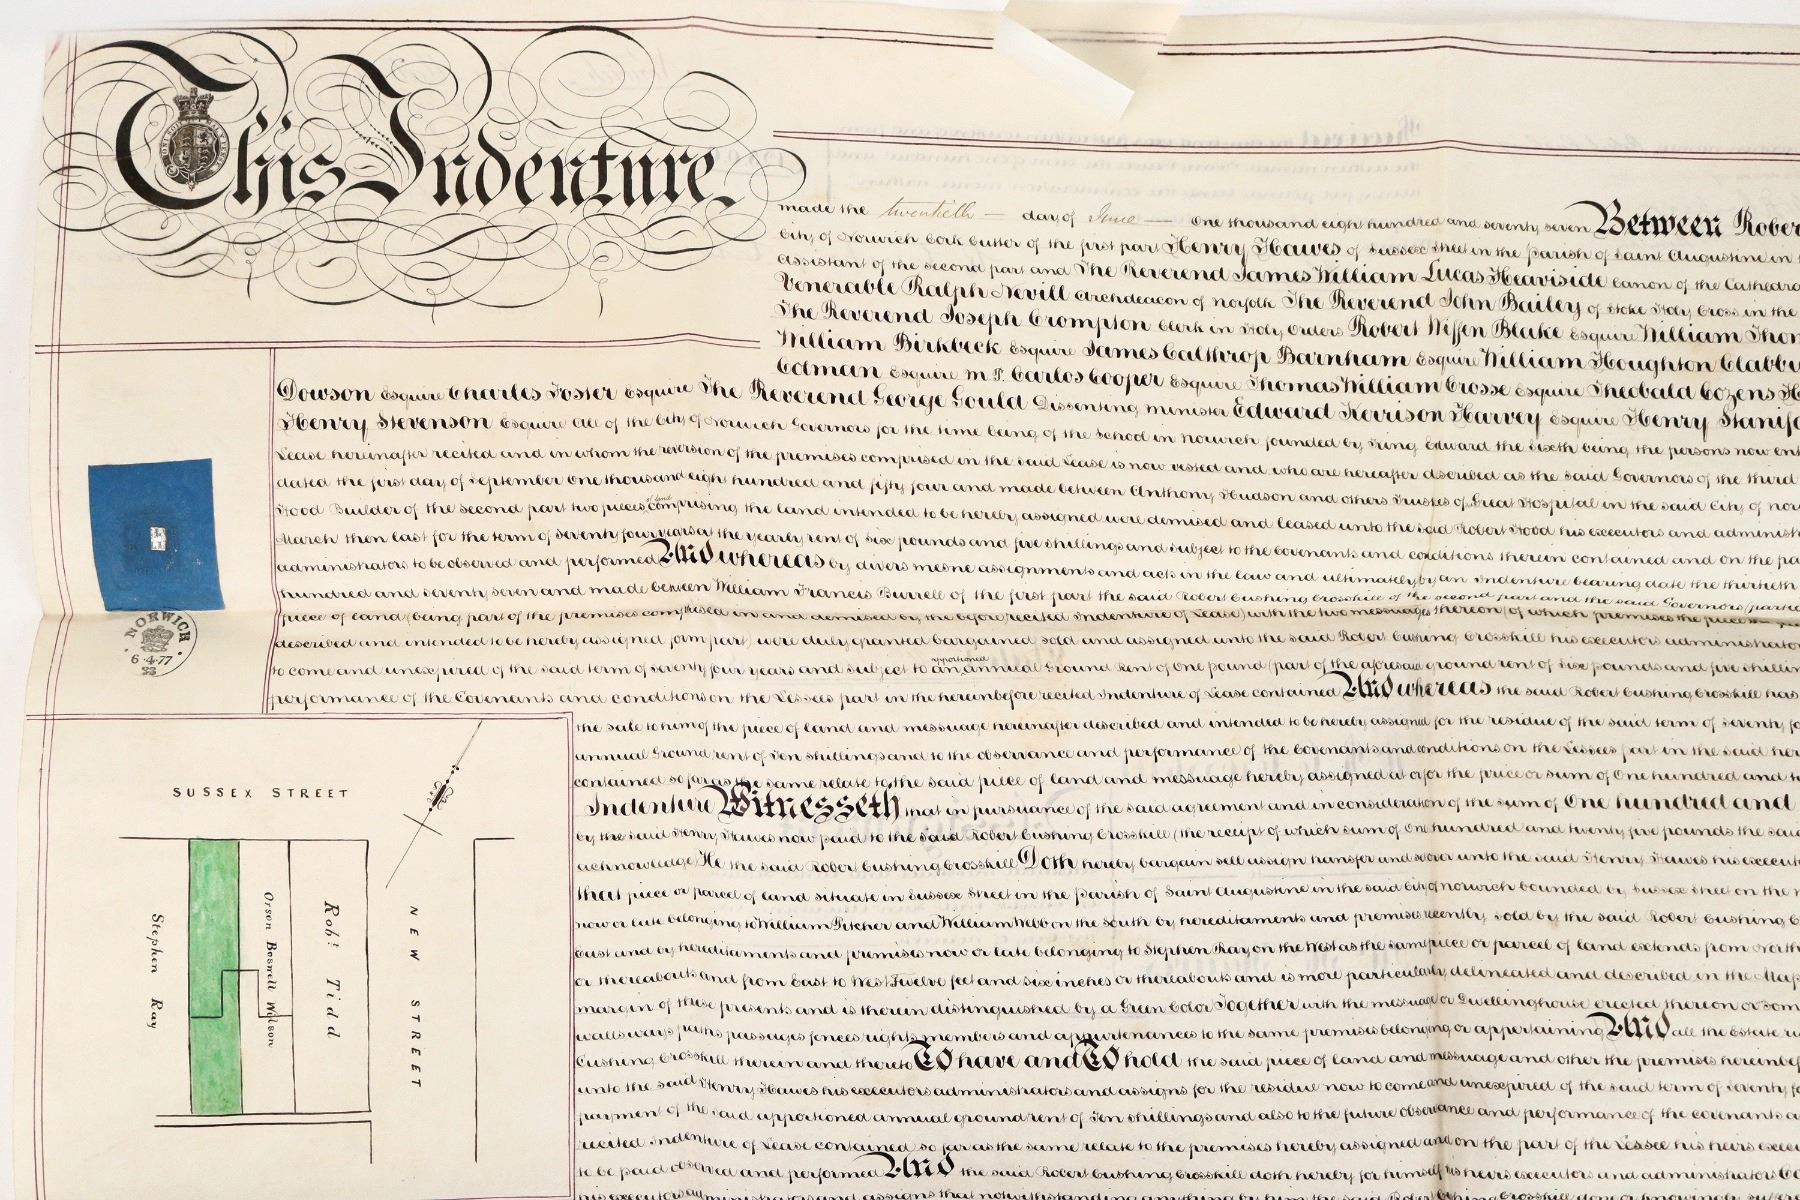 This Indenture
made the twentieth day of June one thousand eight hundred and seventy seven Between Rober
City of Norwich Cork Cutter of the first part Henry Hawes of Sussex Street in the Parish of Saint Augustine in
Assistant of the second part and The Reverend James William Lucas Heaviside Canon of the Cathedra
Venerable Ralph Nevill Archdeacon of Norfolk The Reverend John Bailey of Stoke Holy Cross in the
The Reverend Joseph Crompton Clerk in Holy Orders Robert Wiffen Blake Esquire William Thom
William Birkbeck Esquire James Calthrop Barnham Esquire William Houghton Clabbu
Colman Esquire M.P. Carlos Cooper Esquire Thomas William Crosse Esquire Theobald Cozens H
Dowson Esquire Charles Foster Esquire The Reverend George Gould Dissenting Minister Edward Kerrison Harvey Esquire Henry Stanifo
Henry Stevenson Esquire all of the City of Norwich Governors for the time being of the School in Norwich founded by King Edward the Sixth being the persons now ent
Lease hereinafter recited and in whom the reversion of the premises comprised in the said Lease is now vested and who are hereafter described as the said Governors of the third
dated the first day of September One thousand eight hundred and fifty four and made between Anthony Hudson and others Trustes of Great Hospital in the said City of nor
Hood Builder of the second part two pieces of land comprising the land intended to be hereby assigned were demised and leased unto the said Robert Hood his executors and administ
March then last for the term of seventy four years at the yearly rent of Six pounds and five shillings and subject to the covenants and conditions therein contained and on the pa
administrators to be observed and performed And whereas by divers mesne assignments and acts in the law and ultimately by an Indenture bearing date the thirtieth
hundred and seventy seven and made between William Francis Burrell of the first part the said Robert Cushing Crosskill of the second part and the said Governors (parties
piece of land (being part of the premises comprised in and demised by the before recited Indenture of Lease) with the two messuages thereon (of which premises the piece
described and intended to be hereby assigned form part) were duly granted bargained sold and assigned unto the said Robert Cushing Crosskill his executors administrator
to come and unexpired of the said term of seventy four years and subject to an apportioned annual Ground Rent of One pound (part of the aforesaid ground rent of Six pounds and five shillin
performance of the Covenants and conditions on the Lessees part in the hereinbefore recited Indenture of Lease contained And whereas the said Robert Cushing Crosskill has
the sale to him of the piece of land and messuage hereinafter described and intended to be hereby assigned for the residue of the said term of seventy fo
annual Ground rent of Ten shillings and to the observance and performance of the Covenants and conditions on the Lessees part in the said her
contained so far as the same relate to the said piece of land and messuage hereby assigned at or for the price or sum of One hundred and t
Indenture Witnesseth that in pursuance of the said agreement and in consideration of the sum of One hundred and
by the said Henry Hawes now paid to the said Robert Cushing Crosskill (the receipt of which sum of One hundred and twenty five pounds the said
acknowledge) He the said Robert Cushing Crosskill Doth hereby bargain sell assign transfer and setover unto the said Henry Hawes his execut
that piece or parcel of land situate in Sussex Street in the Parish of Saint Augustine in the said City of Norwich bounded by Sussex Street on the n
now or late belonging to William Pitcher and William Webb on the South by hereditaments and premises recently sold by the said Robert Cushing C
East and by hereditaments and premises now or late belonging to Stephen Ray on the West as the same piece or parcel of land extends from North
or thereabouts and from East to West Twelve feet and six inches or thereabouts and is more particularly delineated and described in the Map
margin of these presents and is therein distinguished by a Green Color Together with the messuage or Dwellinghouse erected thereon or som
walls ways paths passages fences rights members and appurtenances to the same premises belonging or appertaining And all the Estate ri
Cushing Crosskill therein and thereto To have and To hold the said piece of land and messuage and other the premises hereinbef
unto the said Henry Hawes his executors administrators and assigns for the residue now to come and unexpired of the said term of seventy fo
payment of the said apportioned annual ground rent of Ten shillings and also to the future observance and performance of the covenants a
recited Indenture of Lease contained so far as the same relate to the premises hereby assigned and on the part of the Lessee his heirs execu
to be paid observed and performed And the said Robert Cushing Crosskill doth hereby for himself his heirs executors and administrators Co
his executors administrators and assigns that notwithstanding anything by him the said Robert Cushing Crosskill done or knowingly suffer
NORWICH
6·4·77
SUSSEX STREET
Stephen Ray
Orson Boswell Wilson
Robt. Tidd
NEW STREET